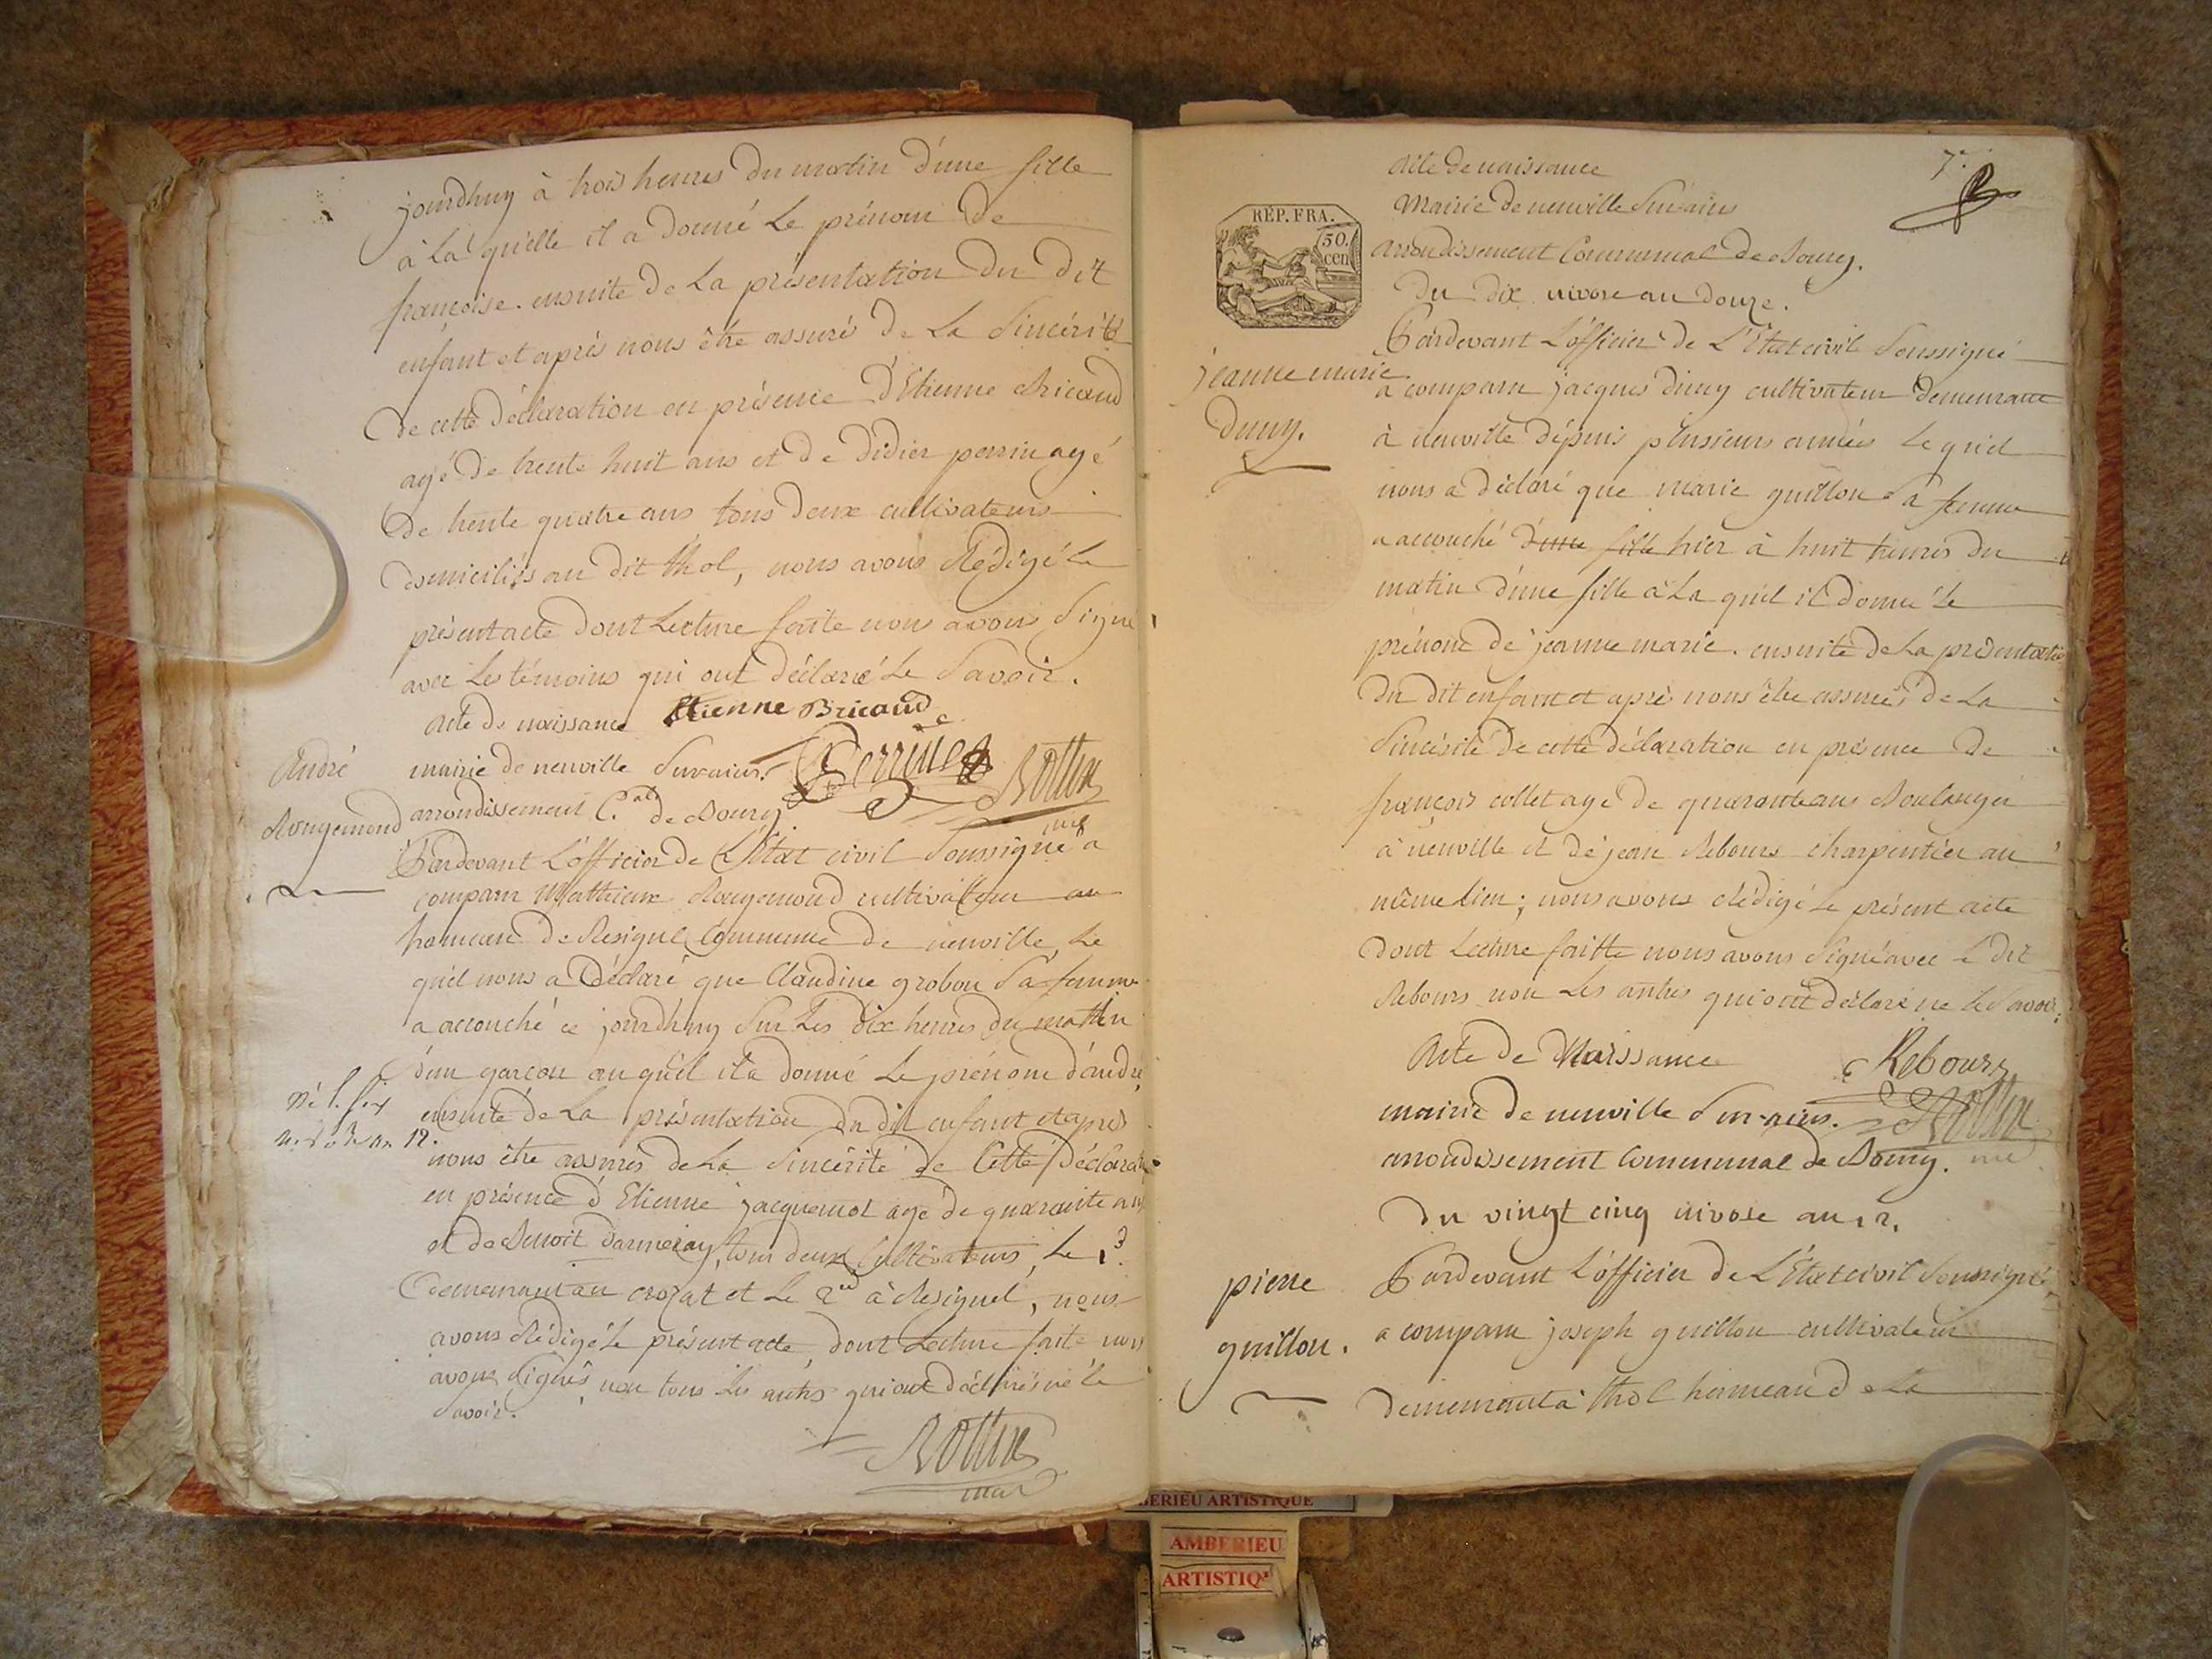 jourdhuy à trois heures du matin d'une fille
à La quelle il a donné Le prénom De
françoise. ensuite De La présentation Du Dit
enfant et après nous être assuré De La Sincérité
De cette Déclaration en présence D'Etienne Bricaud
agé De trente huit ans et De Didier perrin agé
De trente quatre ans tous Deux cultivateurs
domiciliés au dit thol, nous avons Rédigé Le
présent acte dont Lecture faite nous avons Signé
avec Les témoins qui ont déclaré Le Savoir.
Acte de naissance Etienne Bricaud
André mairie de neuville Surains. Perrin Rottin
Rougemond arrondissement C.al de Bourg
Pardevant L'officier De L'Etat civil Soussigné a
comparu Matthieux Rougemond cultivateur au
hameau De Resignel Commune De neuville, Le
quel nous a Déclaré que Claudine grobon Sa femme
a accouché ce jourdhuy Sur Les Dix heures Du matin
d'un garçon au quel il a donné Le prénom d'andré
Né l. six ensuite De La présentation Du Dit enfant et après
nivose an 12. nous être assurés De La Sincérité De Cette Déclaration
en présence d'Etienne jacquemot agé De quarante ans
et De Benoit Darmeray, tous deux Cultivateurs, Le 1.
Demeurant au crozat et Le 2nd à Resignel, nous
avons Rédigé Le présent acte, dont Lecture faite nous
avons Signés, non tous Les autres qui ont déclarés ne le
Savoir.
Rottin
7.
Acte De naissance
Mairie De neuville Sur ains
RÉP. FRA.
50.
cen
Arrondissement Communal De Bourg.
Du Dix nivose an Douze.
Pardevant L'officier De L'Etat civil Soussigné
jeanne marie a comparu jacques Duny cultivateur Demeurant
Duny. à neuville dépuis plusieurs années Le quel
nous a Déclaré que marie guillon Sa femme
a accouché d'une fille hier à huit heures Du
matin d'une fille à La quel il donné Le
prénom De jeanne marie. ensuite De La présentation
Du Dit enfant et après nous être assurés De La
Sincérité De cette Déclaration en présence De
françois collet agé De quarante ans Boulanger
à neuville et De jean Rebours charpentier au
même Lieu; nous avons Rédigé Le présent acte
Dont Lecture faitte nous avons Signé avec Le Dit
Rebours non Les autres qui ont déclaré ne Le Savoir.
Acte De Naissance Rebours
mairie De neuville Sur-ains. Rottin
arrondissement Communal De Bourg.
Du vingt cinq nivose an 12.
pierre Pardevant L'officier De L'Etat civil Soussigné
guillon. a comparu joseph guillon cultivateur
Demeurant à thol hameau De La
AMBERIEU ARTISTIQUE
AMBERIEU
ARTISTIQ